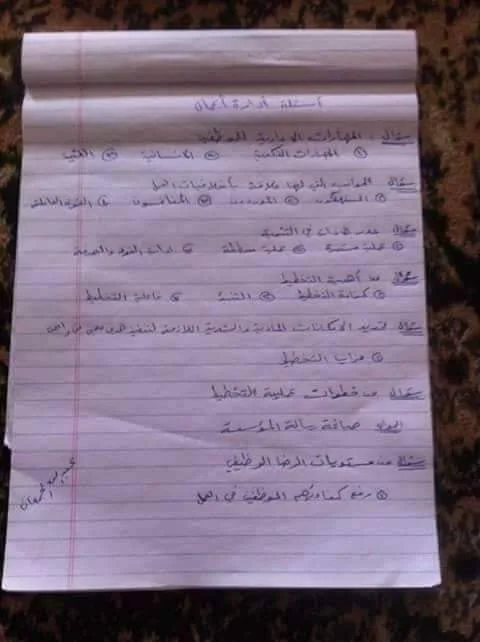 أسئلة إدارة أعمال
سؤال : المهارات الإدارية للموظفين
① المهارات الفكرية ② الإنسانية ③ الفنية
سؤال الجوانب التي لها علاقة بأخلاقيات العمل
① المستهلكون ② الموردون ③ المنافسون ④ القوى العاملة
سؤال في التنمية
① عملية مستمرة ② عملية مخططة
سؤال من أهمية التخطيط
① كفاءة التخطيط ② التنبؤ ③ فاعلية التخطيط
سؤال تحديد الإمكانات المادية والبشرية اللازمة لتنفيذ
① مزايا التخطيط
سؤال من خطوات عملية التخطيط
الجواب صياغة رسالة المؤسسة
سؤال من مستويات الرضا الوظيفي
① رفع كفاءة الموظفين في العمل